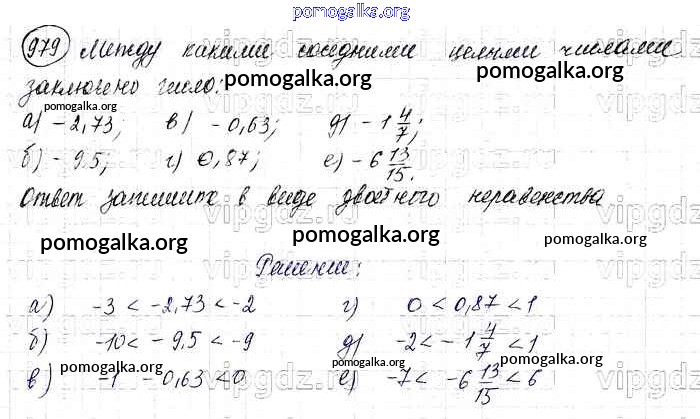 pomogalka.org
979 Между какими соседними целыми числами
заключено число:
pomogalka.org pomogalka.org
а) -2,73; в) -0,63; д) -1 4/7;
б) -9,5; г) 0,87; е) -6 13/15.
pomogalka.org pomogalka.org
Ответ запишите в виде двойного неравенства
vipgdz
pomogalka.org pomogalka.org pomogalka.org
Решение:
а) -3 < -2,73 < -2 г) 0 < 0,87 < 1
pomogalka.org pomogalka.org
б) -10 < -9,5 < -9 д) -2 < -1 4/7 < 1
pomogalka.org pomogalka.org
в) -1 -0,63 < 0 е) -7 < -6 13/15 < 6
pomogalka.org